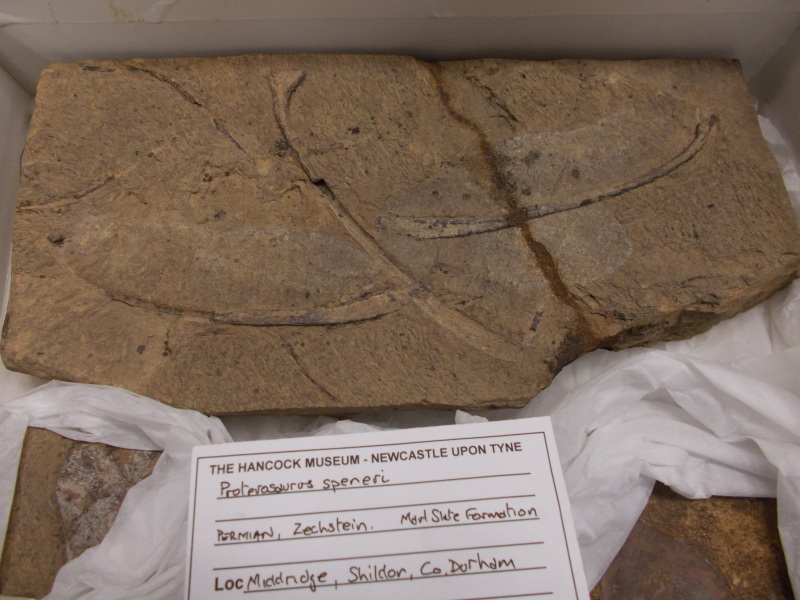 THE HANCOCK MUSEUM - NEWCASTLE UPON TYNE
Proterosaurus speneri
PERMIAN, Zechstein. Marl Slate Formation
Loc Middridge, Shildon, Co. Durham